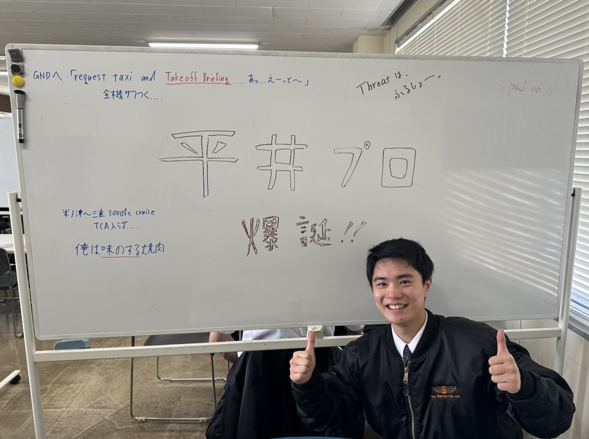 GNDへ「request taxi and Takeoff Briefing あっ…えーっと〜」
全本機ザワつく....
Threatは、
ふるしょー。
平井プロ
爆誕!!
3000ft cruise
TCA入らず....
俺は味のする焼肉